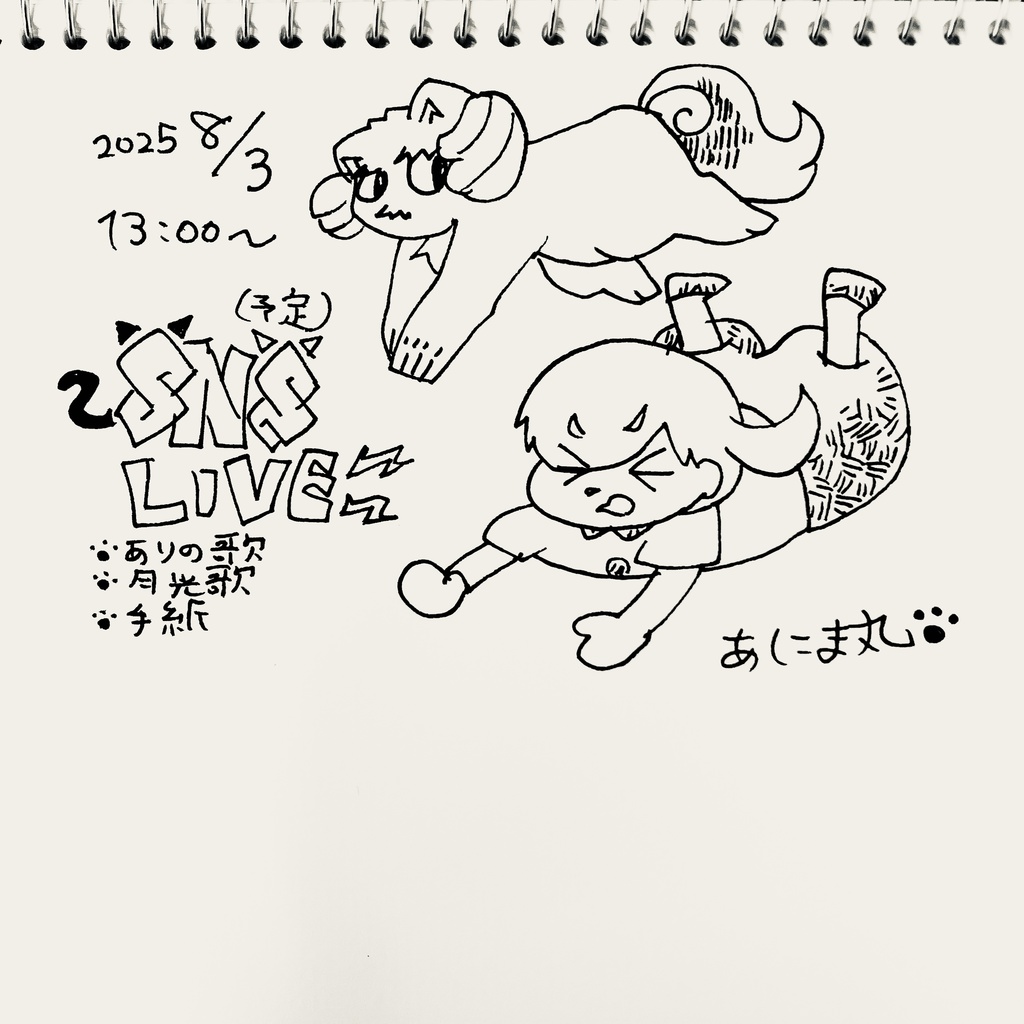 2025 8/3
13:00〜
(予定)
SNS
LIVE
ありの歌
月光歌
手紙
あにま丸